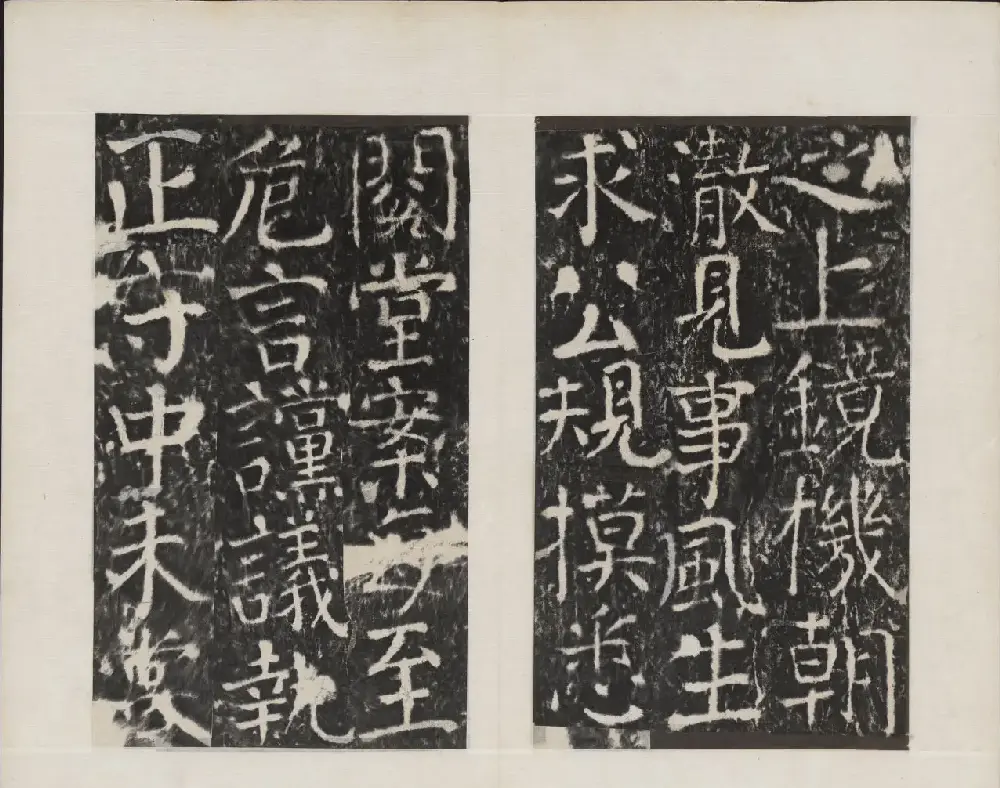 之上鏡機朝
澈見事風生
求公規摸
閣堂案每至
危言讜議執
正守中未